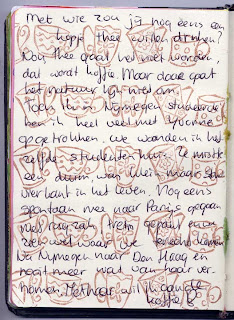 Met wie zou jij nog eens een
kopje thee willen drinken?
Nou, thee gaat het niet worden,
dat wordt koffie. Maar daar gaat
het natuurlijk niet om.
Toen ik in Nijmegen studeerde
ben ik heel veel met Yvonne
opgetrokken, we woonden in het
zelfde studentenhuis. Ze
een van klein meisje
vierkant in het leven. Nog eens
spontaan mee naar Parijs gegaan
trein gepakt en we
zien wel waar we terechtkomen
Na Nijmegen naar Den Haag en
nooit meer wat van haar ver-
nomen. Met haar wil ik aan de
koffie